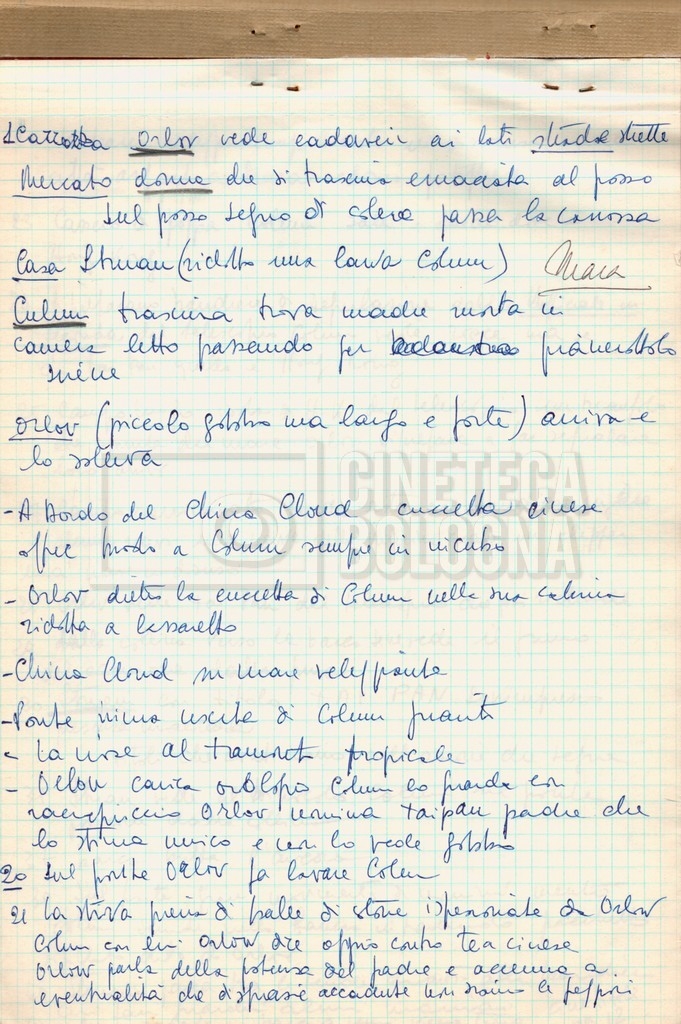 1 Carrozza Orlov vede cadaveri ai lati strada strette
Mercato donna che si trascina emaciata al pozzo
sul pozzo segno di colera passa la carrozza
Casa Struan (ridotto una larva Colum) Mara
Culum trascina trova madre morta in
camera letto passando per pianerottolo
Orlov (piccolo gobbo ma largo e forte) arriva e
lo solleva
CINETECA
BOLOGNA
- A bordo del China Cloud cuccetta cinese
offre brodo a Colum sempre in incubo
- Orlov dietro la cuccetta di Colum nella sua cabina
ridotta a lazzaretto
- China Cloud in mare
- Ponte prima uscita di Colum
- La nave al tramonto tropicale
- Orlov carica orologio Colum lo guarda con
raccapriccio Orlov nomina taipan padre che
lo stima unico e non lo vede gobbo
20 Sul ponte Orlov fa lavare Colum
21 La stiva piena di balle di stoffe ispezionate da Orlov
Colum con lui Orlov dice oppio contro tea cinese
Orlov parla della potenza del padre e accenna a
eventualità che disgrazie accadute non siano le peggiori